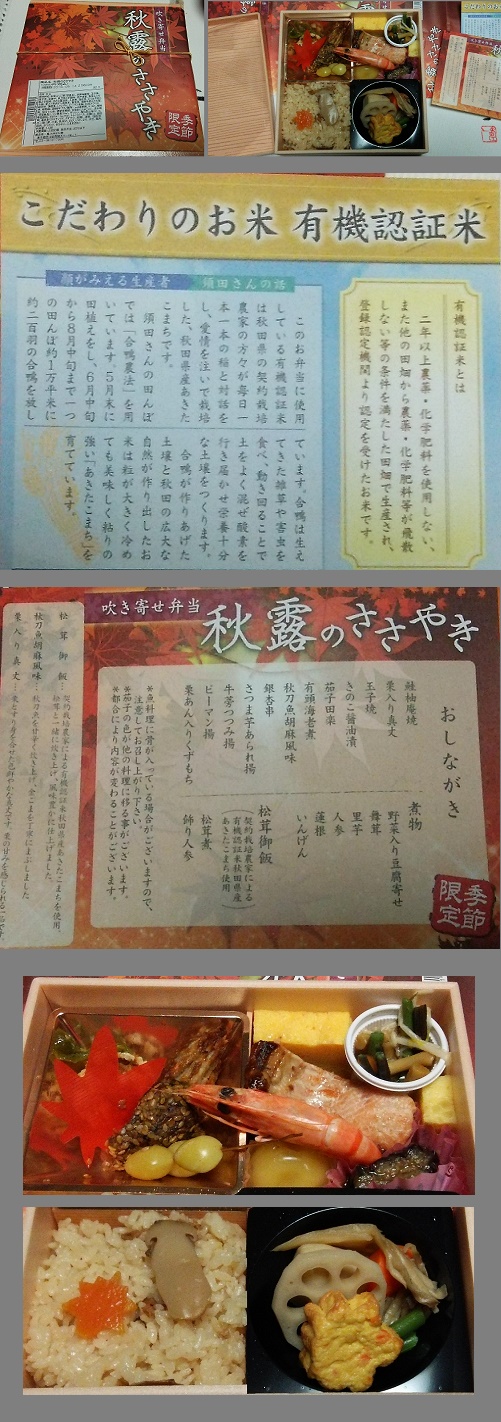 吹き寄せ弁当
秋露のささやき
季節
限定
こだわりのお米 有機認証米
有機認証米とは
二年以上農薬・化学肥料を使用しない、
また他の田畑から農薬・化学肥料等が飛散
しない等の条件を満たした田畑で生産され、
登録認定機関より認定を受けたお米です。
顔がみえる生産者 須田さんの話
このお弁当に使用
している有機認証米
は秋田県の契約栽培
農家の方々が毎日一
本一本の稲と対話を
し、愛情を注いで栽培
した、秋田県産あきた
こまちです。
須田さんの田んぼ
では「合鴨農法」を用
いています。5月末に
田植えをし、6月中旬
から8月中旬まで一つ
の田んぼ約1万平米に
約二百羽の合鴨を放し
ています。合鴨は生え
てきた雑草や害虫を
食べ、動き回ることで
土をよく混ぜ酸素を
行き届かせ栄養十分
な土壌をつくります。
合鴨が作りあげた
土壌と秋田の広大な
自然が作り出したお
米は粒が大きく冷め
ても美味しく粘りの
強い「あきたこまち」を
育てています。
吹き寄せ弁当 秋露のささやき
おしながき
鮭柚庵焼
栗入り真丈
玉子焼
きのこ醤油漬
茄子田楽
有頭海老煮
秋刀魚胡麻風味
銀杏串
さつま芋あられ揚
牛蒡つつみ揚
ピーマン揚
栗あん入りくずもち
煮物
野菜入り豆腐寄せ
舞茸
里芋
人参
蓮根
いんげん
松茸御飯
(契約栽培農家による
有機認証米秋田県産
あきたこまち使用)
松茸煮
飾り人参
※魚料理に骨が入っている場合がございますので、
注意してお召し上がり下さい。
※茄子の色が他の料理に移る事がございます。
※都合により内容が変わることがございます。
季節
限定
松茸御飯…契約栽培農家による有機認証米秋田県産あきたこまちを使用。
松茸と一緒に炊き上げ、風味豊かに仕上げました。
秋刀魚胡麻風味…秋刀魚を甘辛く炊き上げ、金ごまを丁寧にまぶしました。
栗入り真丈…